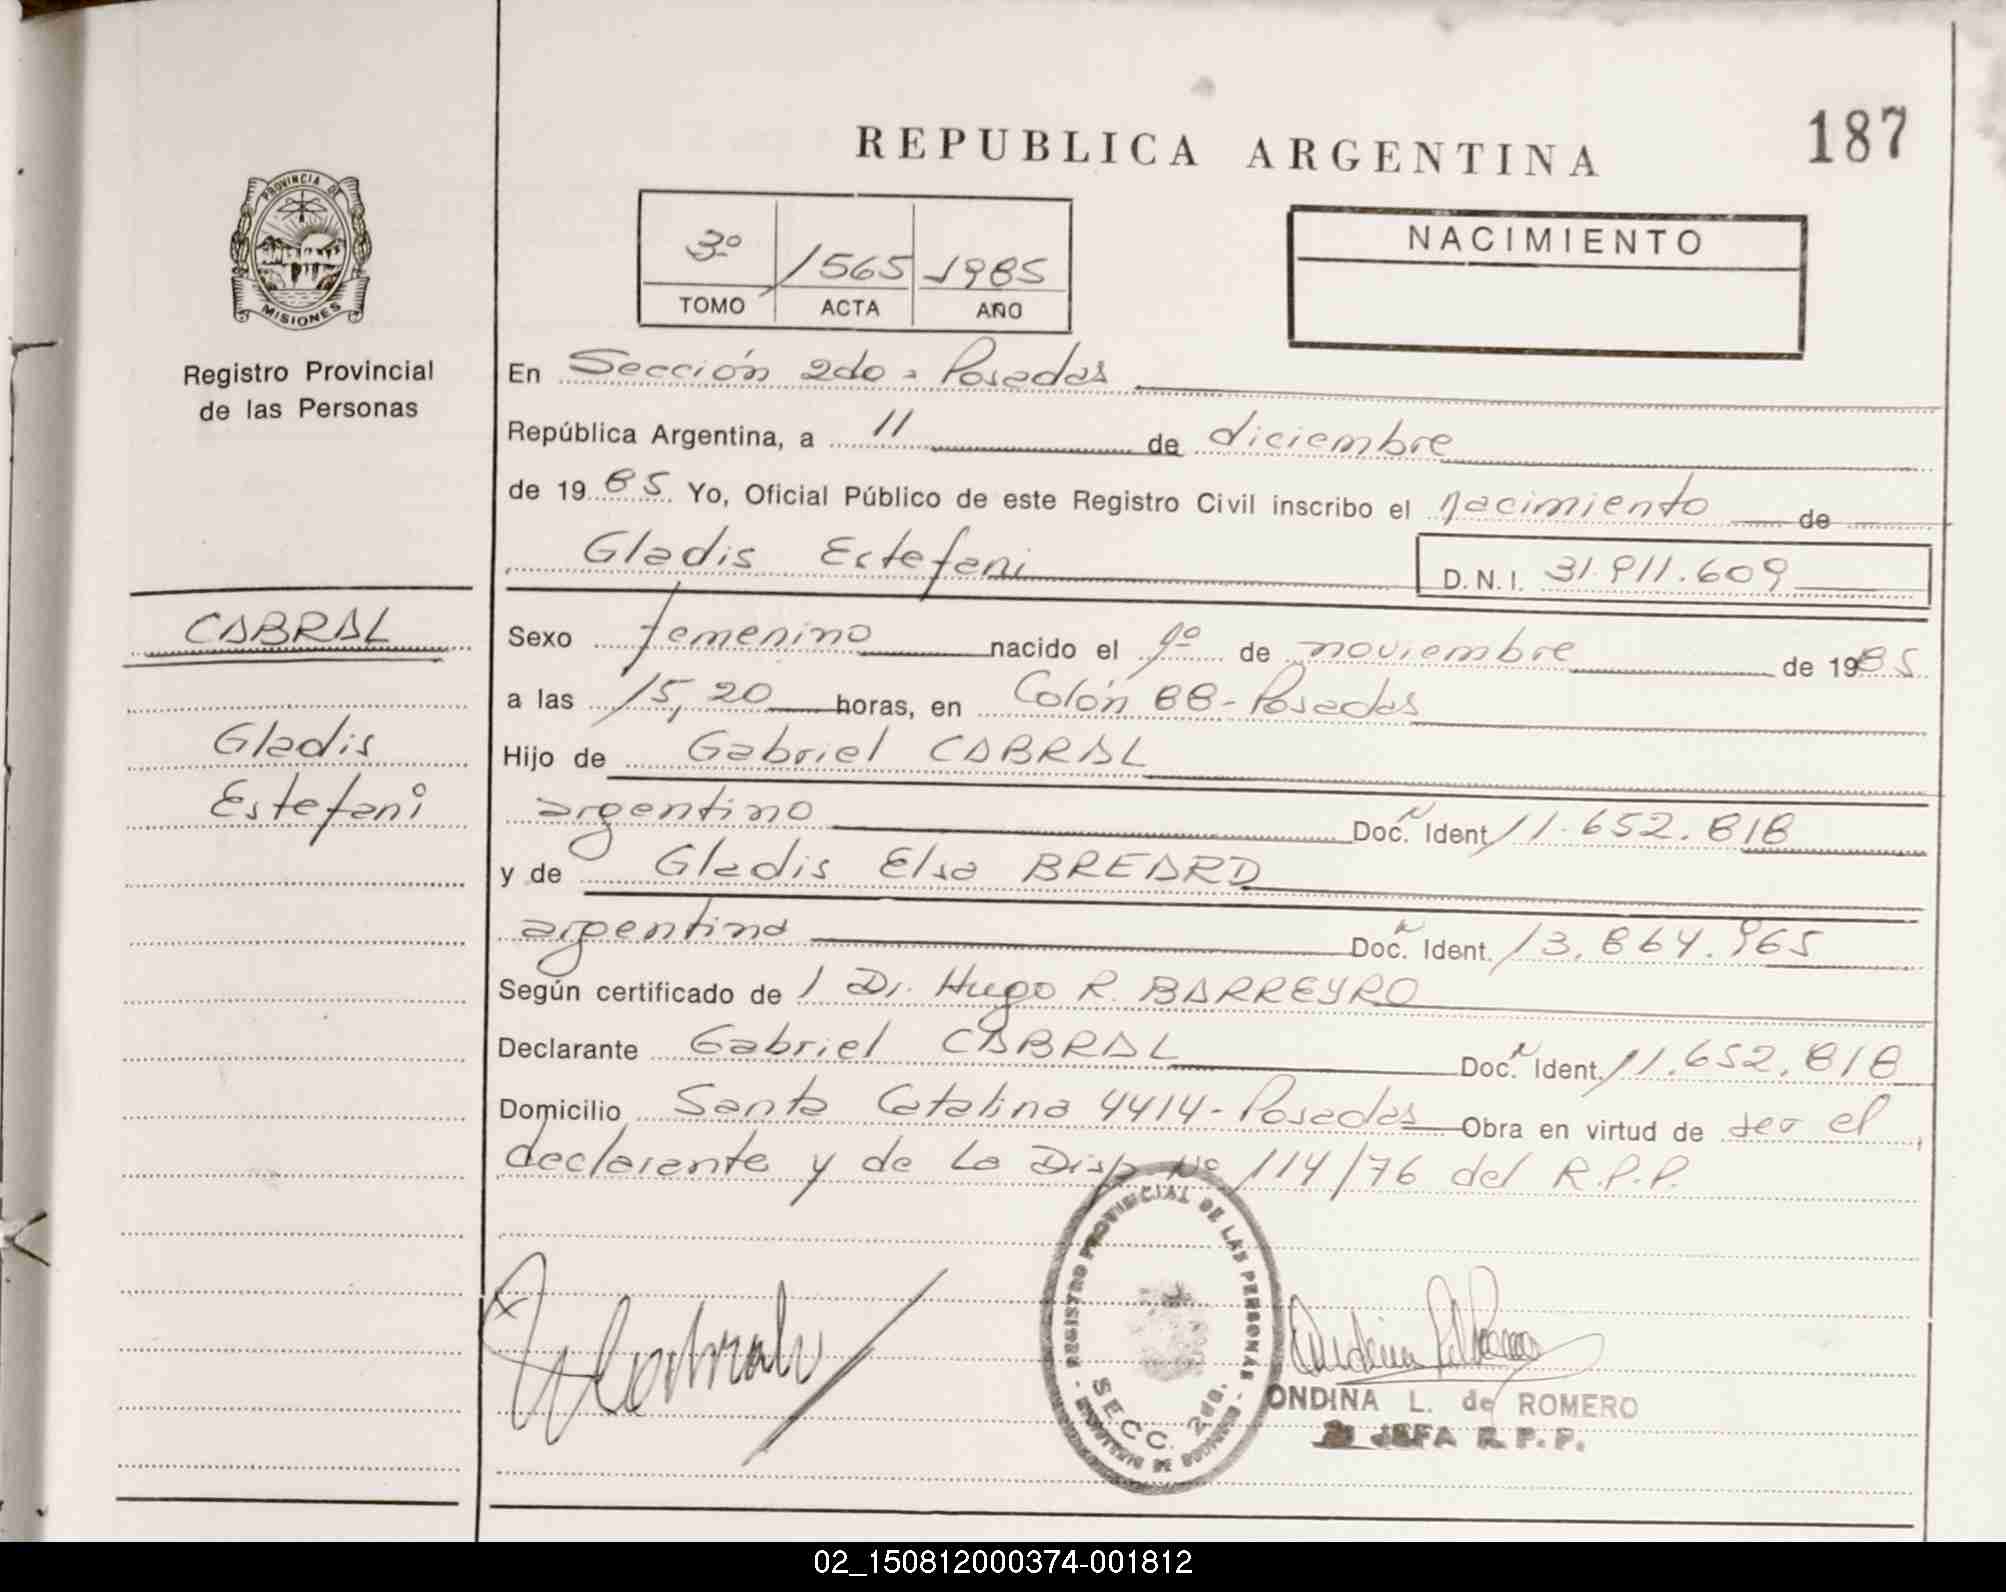 187
REPUBLICA ARGENTINA
PROVINCIA DE
MISIONES
Registro Provincial
de las Personas
3º 1565 1985
TOMO ACTA AÑO
NACIMIENTO
En Sección 2da - Posadas
República Argentina, a 11 de diciembre
de 1985 Yo, Oficial Público de este Registro Civil inscribo el nacimiento de
Gladis Estefani D.N.I. 31.911.609
CABRAL
Gladis
Estefani
Sexo femenino nacido el 1º de noviembre de 1985
a las 15,20 horas, en Colón 88 - Posadas
Hijo de Gabriel CABRAL
argentino Doc. Ident. 11.652.818
y de Gladis Elsa BREARD
argentina Doc. Ident. 13.864.965
Según certificado de 1 Dr. Hugo R. BARREYRO
Declarante Gabriel CABRAL Doc. Ident. 11.652.818
Domicilio Santa Catalina 4414 - Posadas Obra en virtud de ser el
declarante y de La Disp. Nº 114/76 del R.P.P.
REGISTRO PROVINCIAL DE LAS PERSONAS
SECC. 2da.
ONDINA L. de ROMERO
JEFA R.P.P.
02_150812000374-001812